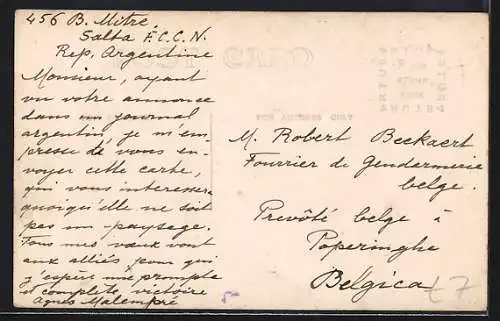 456 B. Mitre.
Salta F.C.C.N.
Rep. Argentine
POST CARD
Monsieur, ayant
vu votre annonce
dans un journal
argentin, je m'em-
presse de vous en-
voyer cette carte,
qui vous interessera
quoiqu'elle ne soit
pas un paysage.
Tous mes vœux vont
aux alliés, pour qui
j'espère une prompte
et complète victoire
Agnes Malempré
FOR ADDRESS ONLY
M. Robert Beckaert
Fourrier de Gendarmerie
belge.
Prevôté belge à
Poperinghe
Belgica
£7